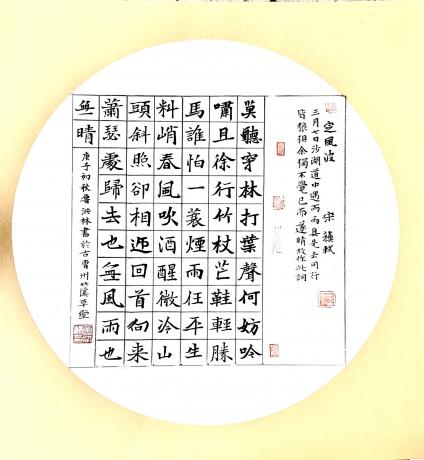 定風波 宋 蘇軾
三月七日沙湖道中遇雨雨具先去同行
皆狼狽余獨不覺已而遂晴故作此詞
莫聽穿林打葉聲何妨吟
嘯且徐行竹杖芒鞋輕勝
馬誰怕一蓑煙雨任平生
料峭春風吹酒醒微冷山
頭斜照卻相迎回首向來
蕭瑟處歸去也無風雨也
無晴
庚子初秋魯洪林書於古曹州竹溪草堂